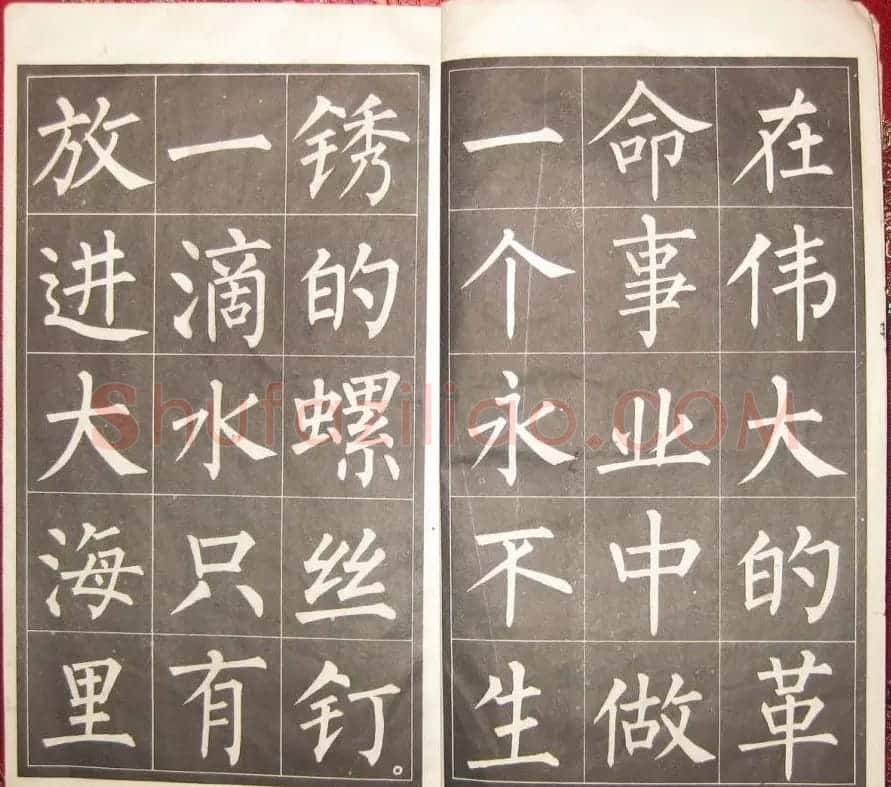 在伟大的革
命事业中做
一个永不生
锈的螺丝钉。
一滴水只有
放进大海里
Shufaziliao.COM